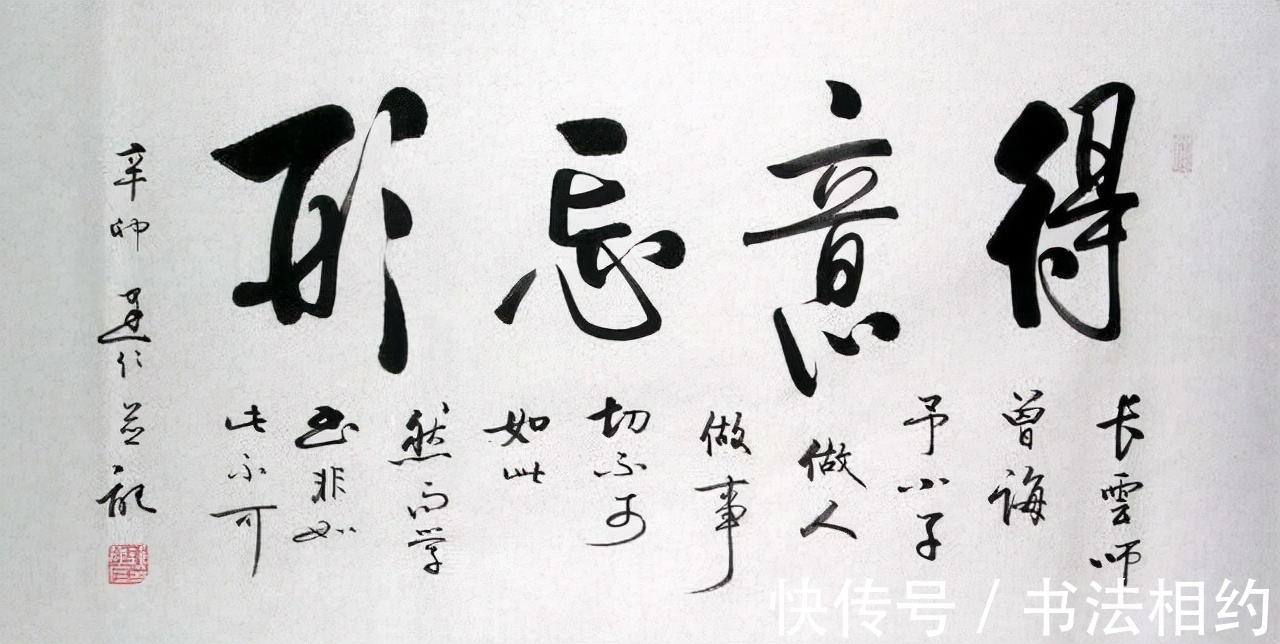 得意忘形
长雲师
曾诲
予小子
做人
做事
切不可
如此
然而学
书非如
此不可
辛卯
建仁并记
快传号 / 书法相约